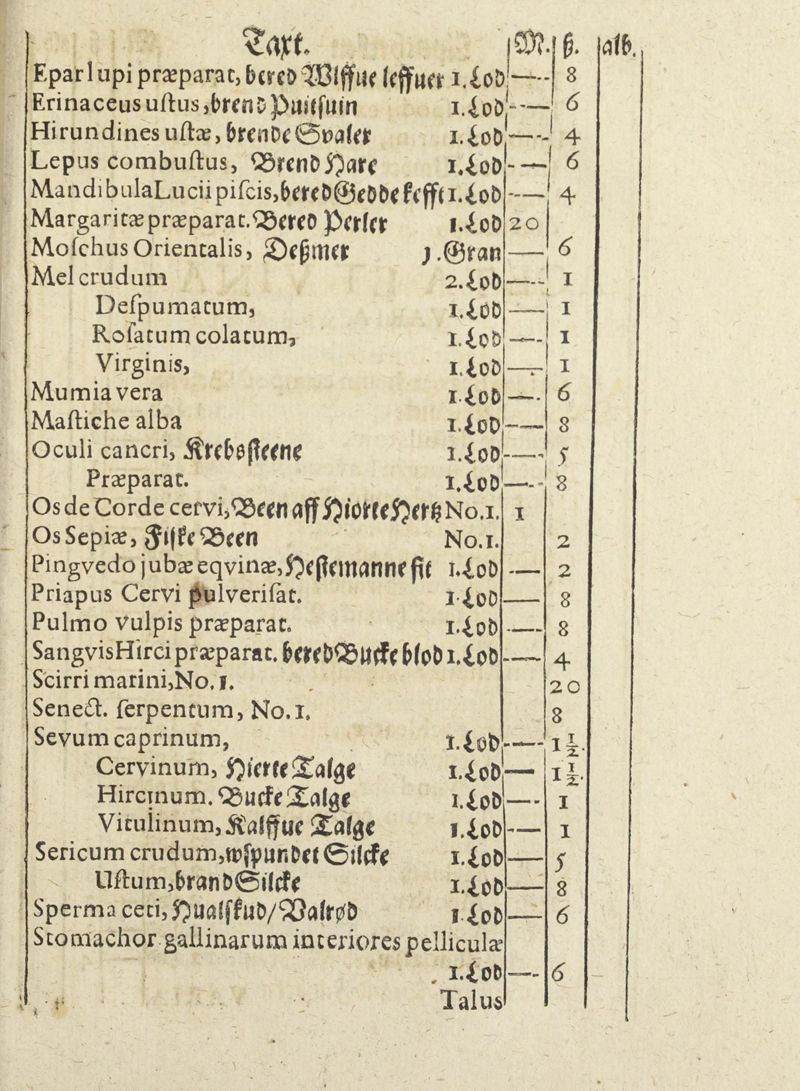 Taxt. M. ß. alb.
Epar lupi præparat, bered Wlffue leffuer 1. Lod — 8
Erinaceus uſtus, brend Puitſuin 1. Lod — 6
Hirundines uſtæ, brende Svaler 1. Lod — 4
Lepus combuſtus, Brend Hare 1. Lod — 6
Mandibula Lucii piſcis, bered Gedde keffti 1. Lod — 4
Margaritæ præparat. Bered Perler 1. Lod 20
Moſchus Orientalis, Deßmer j. Gran — 6
Mel crudum 2. Lod — 1
Deſpumatum, 1. Lod — 1
Roſatum colatum, 1. Lod — 1
Virginis, 1. Lod — 1
Mumia vera 1. Lod — 6
Maſtiche alba 1. Lod — 8
Oculi cancri, Krebsſteene 1. Lod — 5
Præparat. 1. Lod — 8
Os de Corde cervi, Been aff Hiorte Hertz No. 1. 1
Os Sepiæ, Fiſke Been No. 1. 2
Pingvedo jubæ eqvinæ, Heſtemanne fit 1. Lod — 2
Priapus Cervi pulveriſat. 1 Lod — 8
Pulmo Vulpis præparat. 1. Lod — 8
Sangvis Hirci præparat. bered Bucke blod 1. Lod — 4
Scirri marini, No. 1. 20
Senect. ſerpentum, No. 1. 8
Sevum caprinum, 1. Lod — 1½.
Cervinum, Hierte Talge 1. Lod — 1½.
Hircinum. Bucke Talge 1. Lod — 1
Vitulinum, Kalffue Talge 1. Lod — 1
Sericum crudum, wſpundet Silcke 1. Lod — 5
Uſtum, brand Silcke 1. Lod — 8
Sperma ceti, Hualffud/Valrød 1 Lod — 6
Stomachor gallinarum interiores pelliculæ
1. Lod — 6
Talus